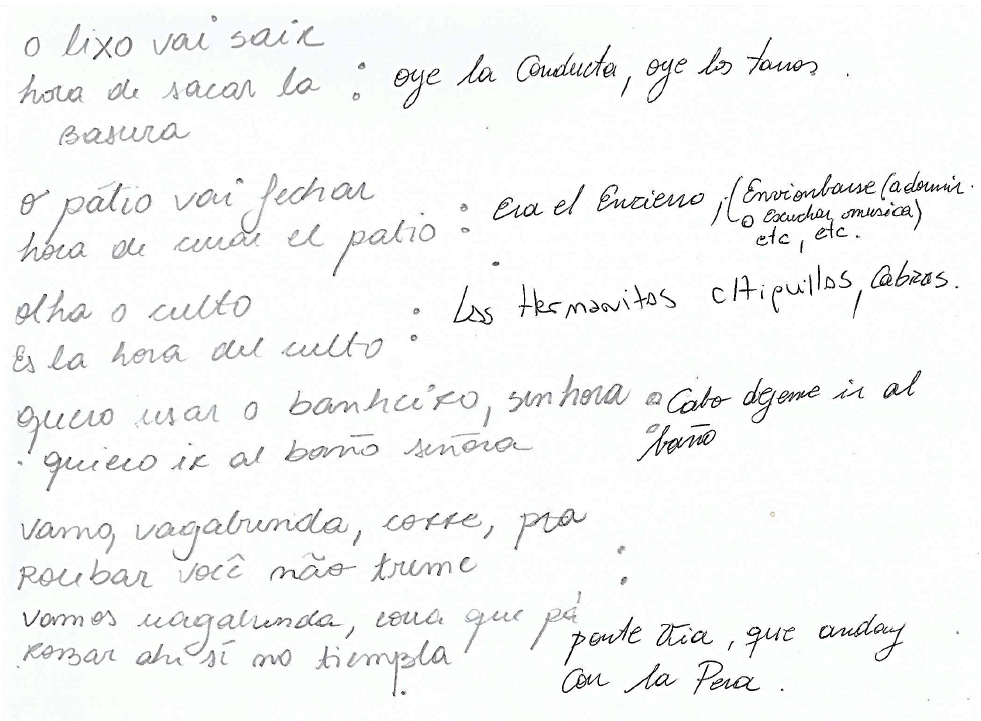 o lixo vai sair
hora de sacar la : oye la Conducta, oye los tanos.
Basura
o pátio vai fechar
hora de cerrar el patio : Era el Encierro, (Envionbarse (a dormir.
o Escuchar musica)
etc, etc.
olha o culto
Es la hora del culto : Los Hermanitos cHiquillos, Cabras.
quero usar o banheiro, senhora : Cabo dejeme ir al
quiero ir al baño señora baño
Vamo, vagabunda, corre, pra
Roubar você não treme :
vamos vagabunda, corra que pá
Robar ahi sí no tiempla ponte tia, que anday
Con la Pera.